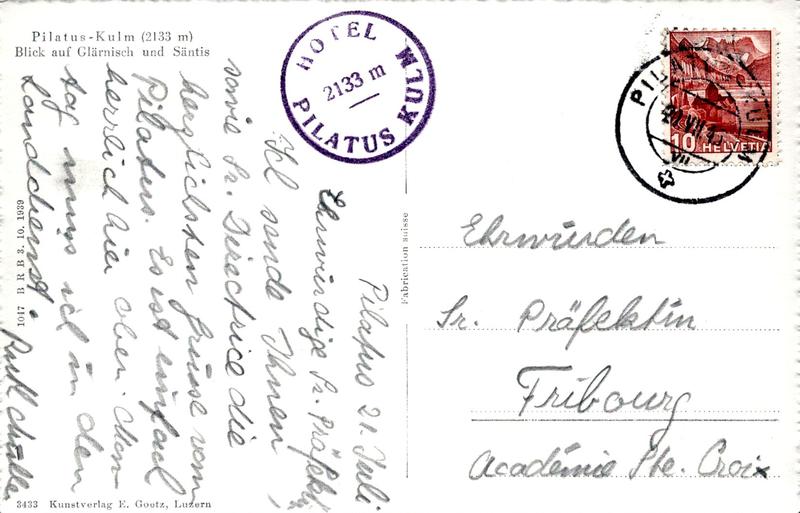 Pilatus-Kulm (2133 m)
Blick auf Glärnisch und Säntis
HOTEL
2133 m
PILATUS KULM
10 HELVETIA
VII
Pilatus 21. Juli
Ehrwürdige Sr. Präfektin,
Ich sende Ihnen
sowie Sr. Directrice die
herzlichsten Grüsse vom
Pilatus. Es ist einfach
herrlich hier oben. Mon-
tag muss ich in den
Landdienst.
Ehrwürden
Sr. Präfektin
Fribourg
Académie Ste. Croix
Fabrication suisse
1047 B R B 3. 10. 1939
3433 Kunstverlag E. Goetz, Luzern